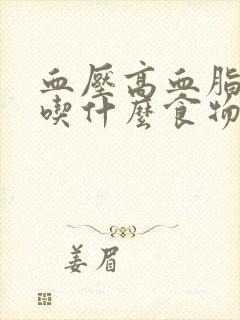 血壓高血脂
喫什麽食物
姜眉